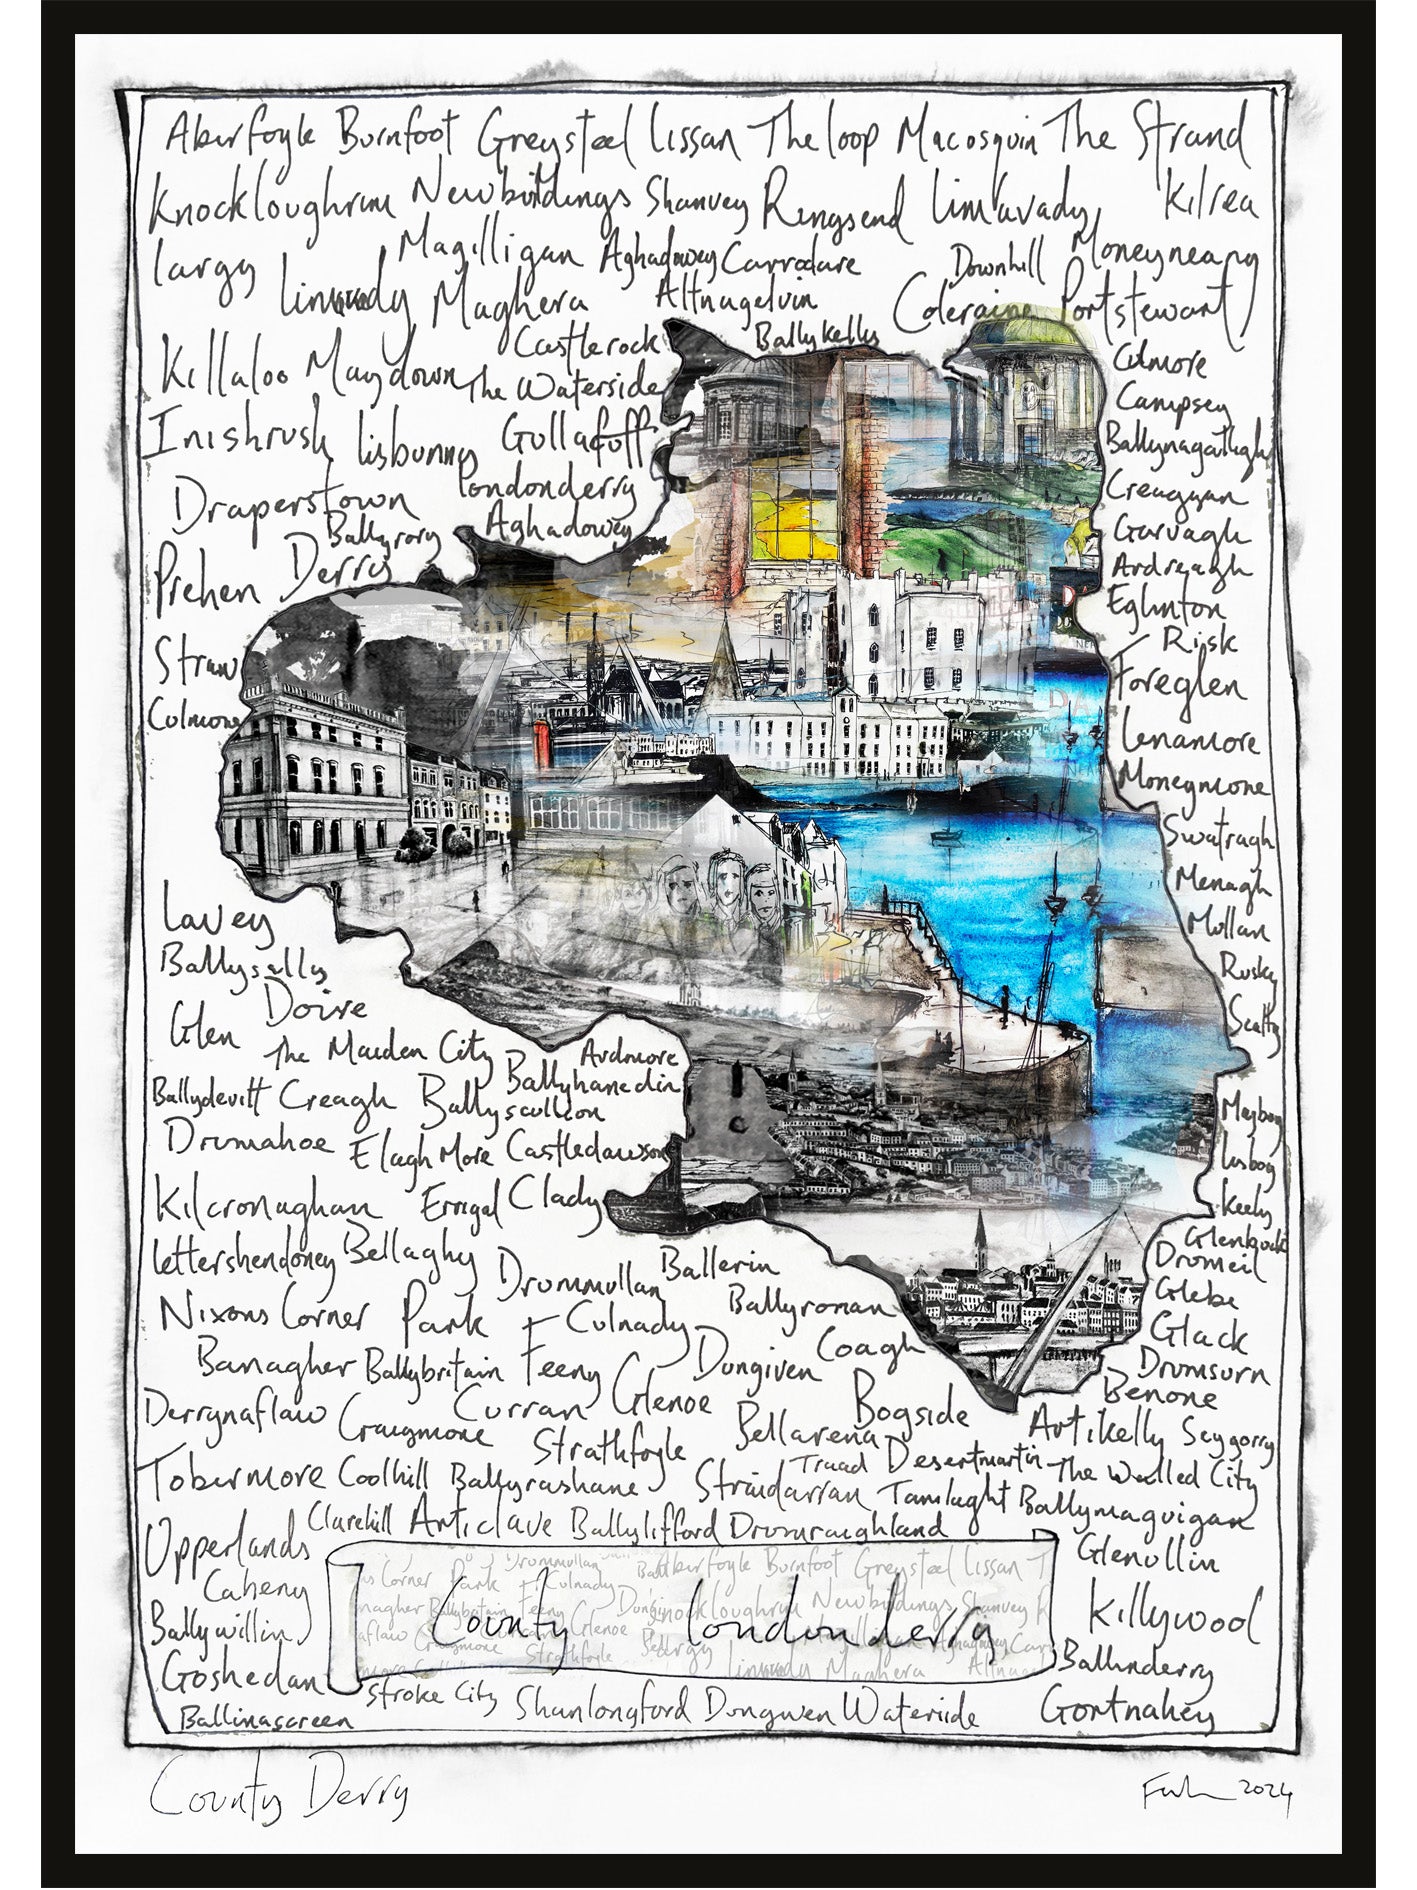 Aberfoyle Burnfoot Greysteel Lissan The loop Macosquin The Strand
Knockloughrim Newbuildings Shanvey Ringsend Limavady Kilrea
Largy Magilligan Aghadowey Carrodare Downhill Moneyneany
Limavady Maghera Altnagelvin Coleraine Portstewart
Castlerock Ballykelly
Killaloo Maydown The Waterside
Culmore
Campsey
Inishrush Lisbunny Gulladuff
Ballynagalliagh
Draperstown Londonderry
Creaggan
Ballyrory Aghadowey
Garvagh
Prehen Derry
Ardreagh
Eglinton
Straw
Risk
Foreglen
Culmore
Lenamore
Moneymore
Swatragh
Menagh
Mullan
Lavey
Rusky
Ballysally
Doire
Scalty
Glen The Maiden City Ardmore
Ballyhanedin
Ballydevitt Creagh Ballyscullion
Mayboy
Drumahoe Elagh More Castledawson
Lisboy
Kilcronaghan Errigal Clady
Keely
Glenkeen
Lettershendoney Bellaghy Drummullan Ballerin
Drumeil
Glebe
Nixons Corner Park Culnady Ballyronan
Glack
Banagher Ballybritain Feeny Dungiven Coagh
Drumsurn
Benone
Derrynaflaw Craigmore Curran Glenoe Bogside
Strathfoyle Bellarena Artikelly Seygorry
Tobermore Coolhill Ballyrashane Straidarran Traad Desertmartin The Walled City
Tamlaght Ballymaguigan
Upperlands Clarehill Articlave Ballylifford Drumraighland
Glenullin
Caheny
Ballywillin
Killywool
County Londonderry
Goshedan
Ballinderry
Stroke City Shanlongford Dungiven Waterside Gortnahey
Ballinascreen
County Derry
2024